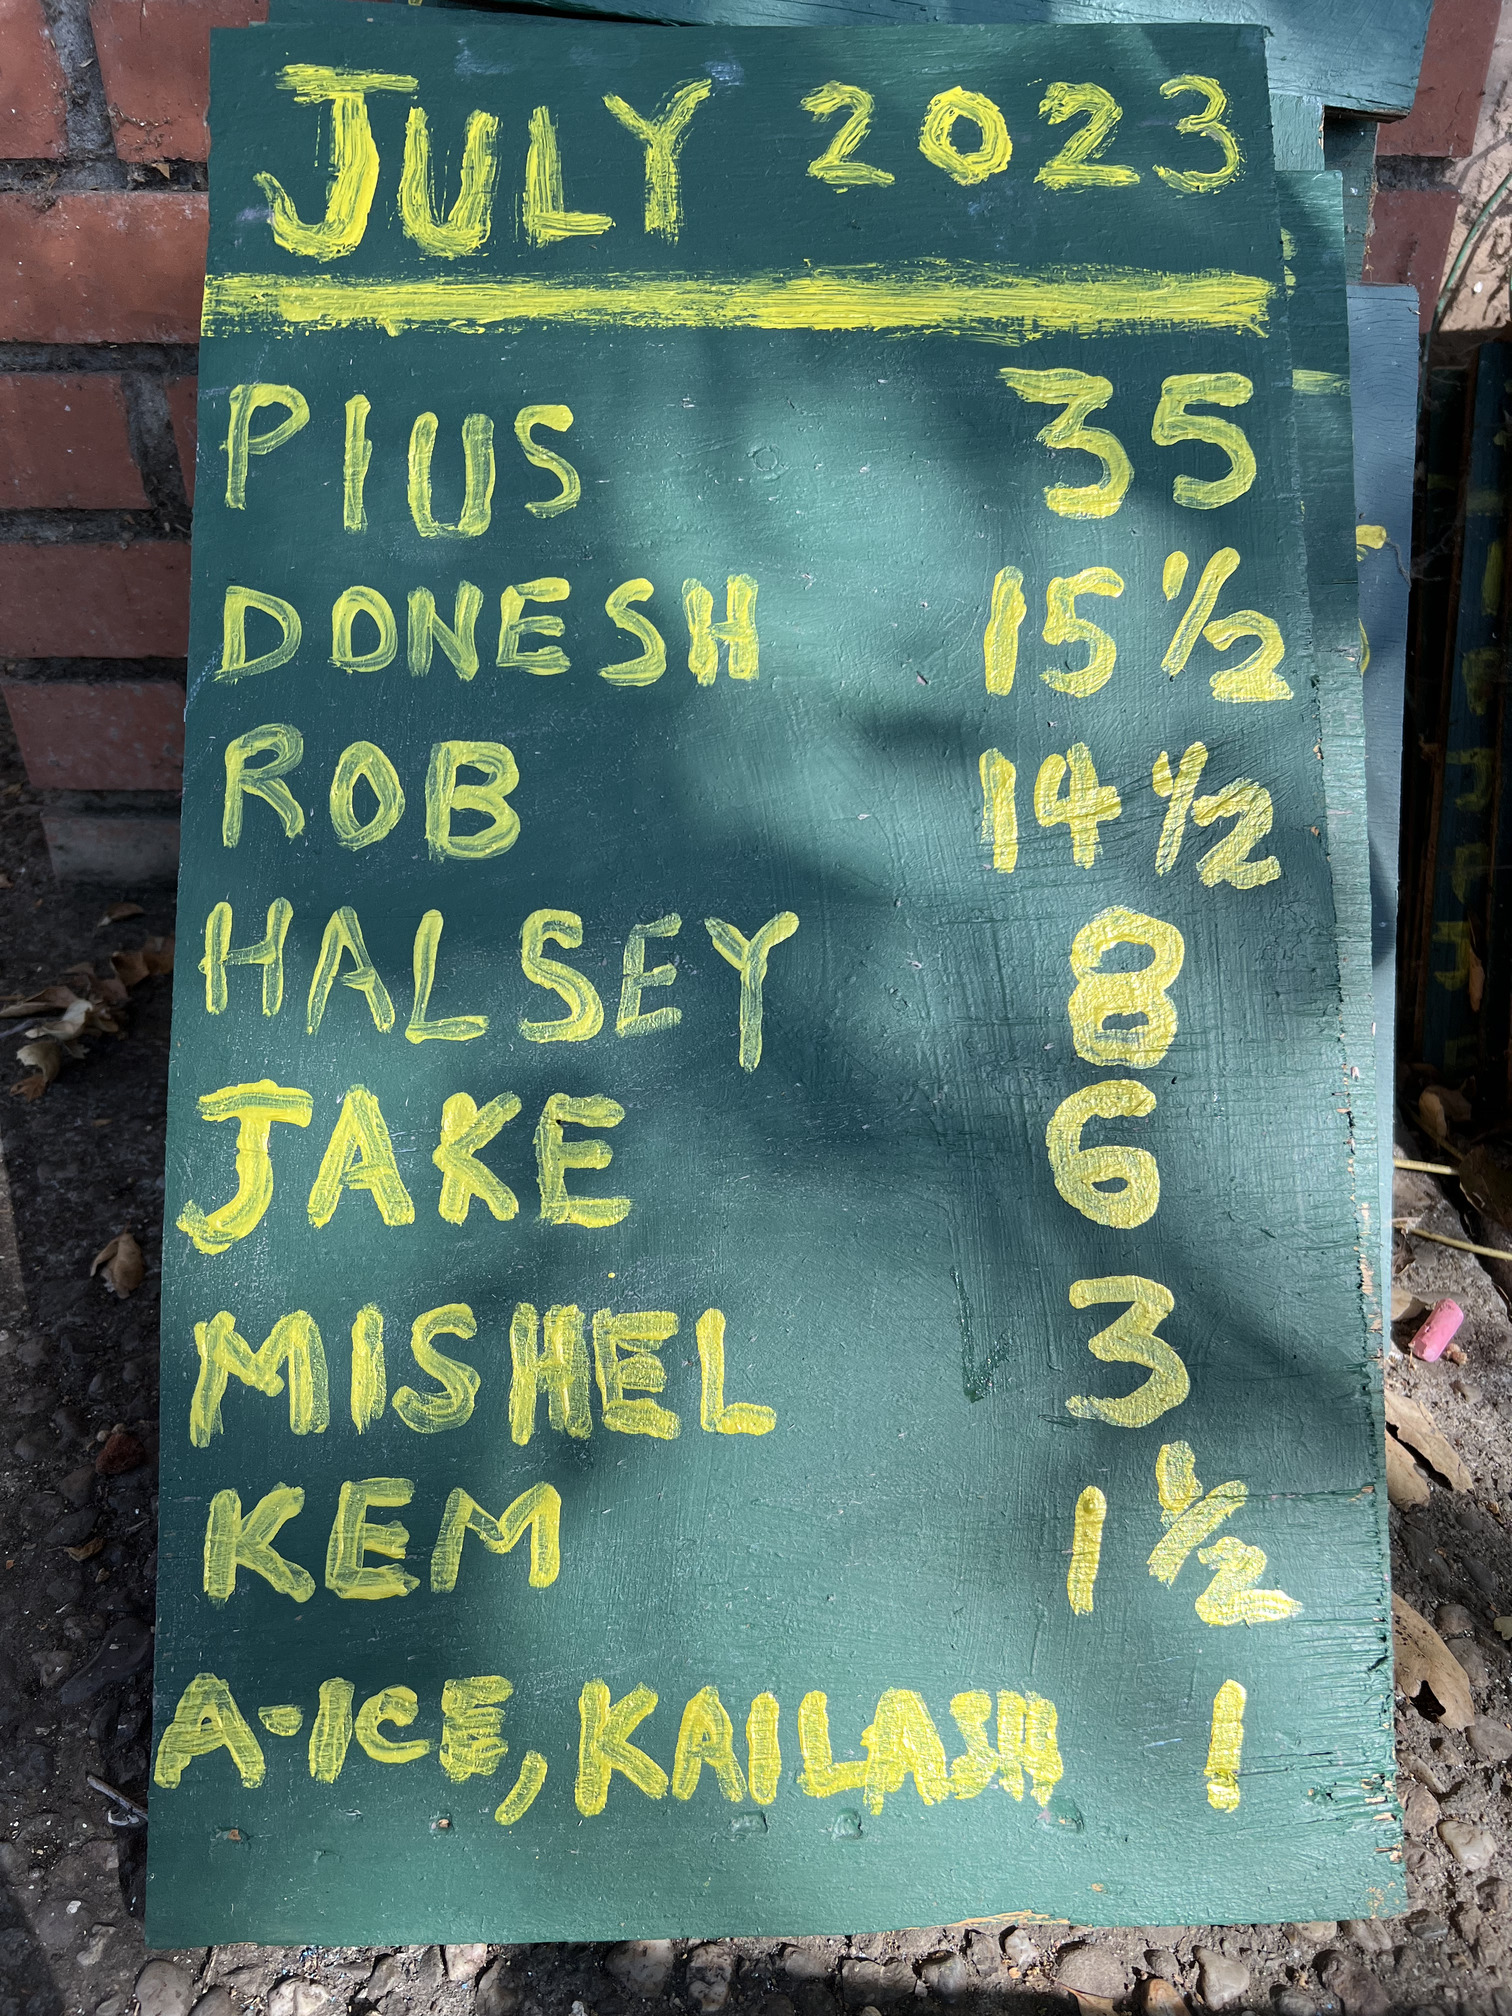 JULY 2023
PIUS 35
DONESH 15 1/2
ROB 14 1/2
HALSEY 8
JAKE 6
MISHEL 3
KEM 1 1/2
A-ICE, KAILASH 1